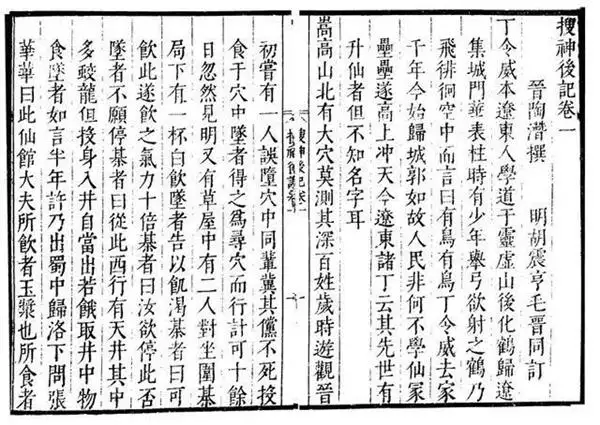 搜神後記卷一
晉陶潛撰 明胡震亨毛晉同訂
丁令威本遼東人學道于靈虛山後化鶴歸遼
集城門華表柱時有少年舉弓欲射之鶴乃
飛徘徊空中而言曰有鳥有鳥丁令威去家
千年今始歸城郭如故人民非何不學仙冢
壘壘遂高上冲天今遼東諸丁云其先世有
升仙者但不知名字耳
嵩高山北有大穴莫測其深百姓歲時遊觀晉
搜神後記卷一
初嘗有一人誤墮穴中同輩冀其儻不死投
食于穴中墜者得之為尋穴而行計可十餘
日忽然見明又有草屋中有二人對坐圍棊
局下有一杯白飲墜者告以飢渴棊者曰可
飲此遂飲之氣力十倍棊者曰汝欲停此否
墜者不願停棊者曰從此西行有天井其中
多蛟龍但投身入井自當出若餓取井中物
食墜者如言半年許乃出蜀中歸洛下問張
華華曰此仙館大夫所飲者玉漿也所食者